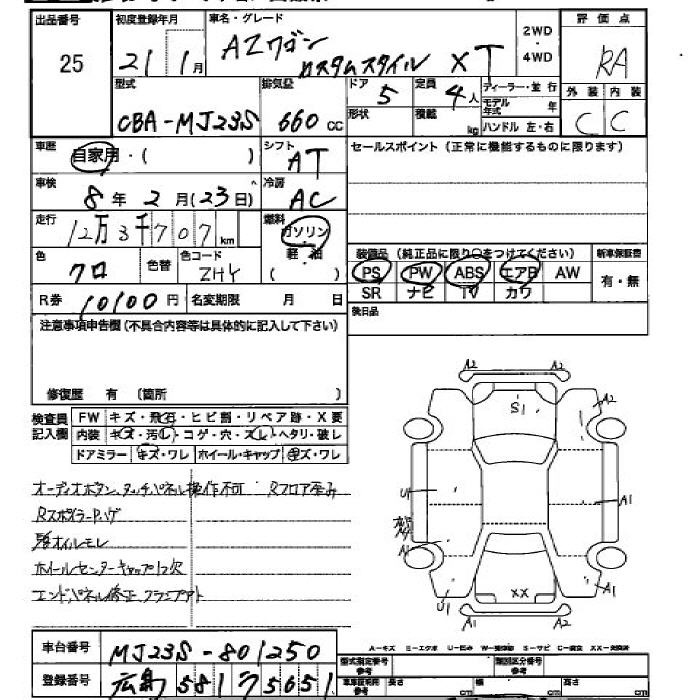 出品番号 初度登録年月 車名・グレード 2WD・4WD 評価点
25 21年1月 AZワゴン カスタムスタイル XT RA
型式 排気量 ドア 5 定員 4人 ディーラー・並行 外装 内装
CBA-MJ23S 660cc 形状 積載 kg モデル年式 年 C C
ハンドル 左・右
車歴 自家用・( ) シフト AT セールスポイント(正常に機能するものに限ります)
車検 8年2月(23日) 冷房 AC
走行 12万3千707km 燃料 ガソリン・軽油 ( )
色 クロ 色替 色コード ZHY
装備品(純正品に限り○をつけてください) 新車保証書
PS PW ABS エアB AW 有・無
SR ナビ TV カワ
R券 10100円 名変期限 月 日 後日品
注意事項申告欄(不具合内容等は具体的に記入して下さい)
修復歴 有 (箇所 )
検査員記入欄 FW キズ・飛石・ヒビ割・リペア跡・X要
内装 キズ・汚レ・コゲ・穴・スレ・ヘタリ・破レ
ドアミラー キズ・ワレ ホイール・キャップ キズ・ワレ
オーディオボタン、タッチパネル操作不可 Rフロア歪み
Rスポイラーハゲ
オイルモレ
ホイールセンターキャップ1コ欠
エンドパネル修正、フラップアト
A2 A2
S1 A2
U1 A1
A1
XX A1
U1 A2 A2
A-キズ E-エクボ U-凹み W-補修跡 S-サビ C-腐食 XX-交換済
車台番号 MJ23S-801250
登録番号 広島 581 ラ 5651
型式指定番号 参考 類別区分番号 参考
車庫証明用 参考 長さ cm 幅 cm 高さ cm